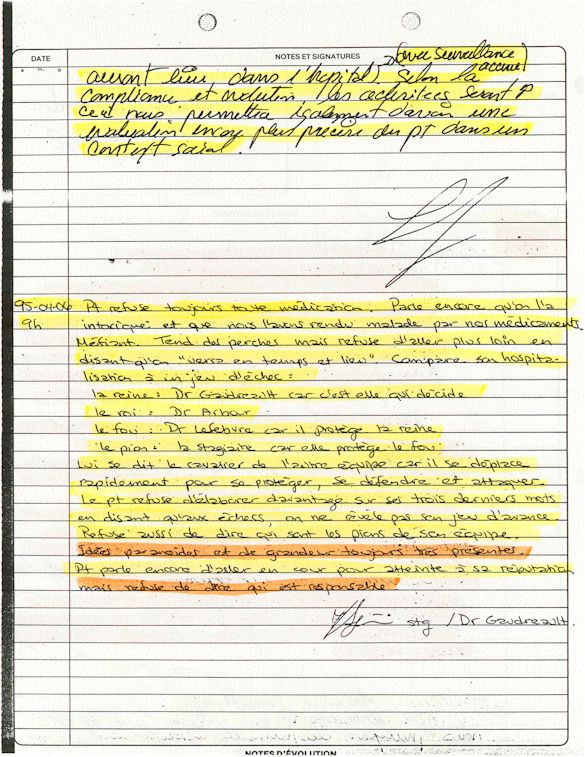 DATE
NOTES ET SIGNATURES
(avec surveillance
accrue)
auront lieu dans l'hôpital) Selon la
compliance et évolution les activités seront
ceci nous permettra également d'avoir une
évaluation encore plus précise du pt dans un
context social.
95-04-06 Pt refuse toujours toute médication. Parle encore qu'on l'a
9h intoxiqué et que nous l'avons rendu malade par nos médicaments.
Méfiant. Tend des perches mais refuse d'aller plus loin en
disant qu'on "verra en temps et lieu". Compare son hospita-
lisation à un jeu d'échec :
la reine : Dr Gaudreault car c'est elle qui décide
le roi : Dr Arbour
le fou : Dr Lefebvre car il protège la reine
le pion : la stagiaire car elle protège le fou
Lui se dit le cavalier de l'autre équipe car il se déplace
rapidement pour se protéger, se défendre et attaquer.
Le pt refuse d'élaborer davantage sur ses trois derniers mots
en disant qu'aux échecs, on ne révèle pas son jeu d'avance
Refuse aussi de dire qui sont les pions de son équipe.
Idées paranoïdes et de grandeur toujours très présentes.
Pt parle encore d'aller en cour pour atteinte à sa réputation
mais refuse de dire qui est responsable
stg / Dr Gaudreault.
NOTES D'ÉVOLUTION